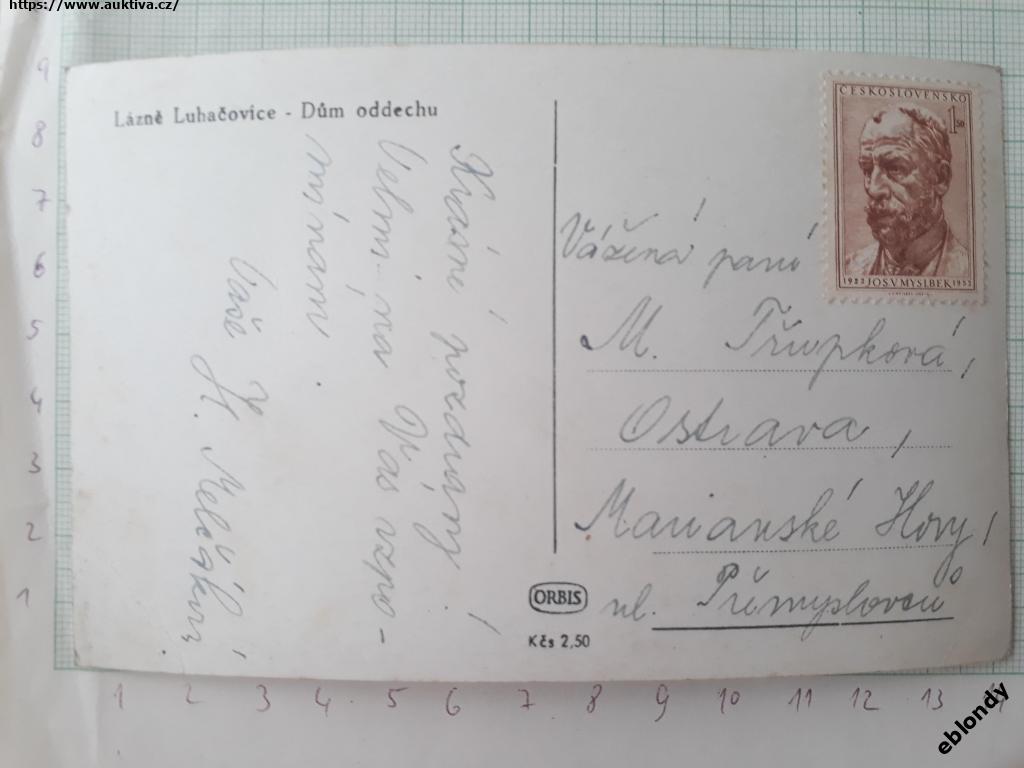 https://www.auktiva.cz/
Lázně Luhačovice - Dům oddechu
Krásné pozdravy!
Velmi na Vás vzpo-
mínám.
Vaše
H.
ČESKOSLOVENSKO
1 50
1922 JOS.V.MYSLBEK 1952
Vážená paní
M. Třupková,
Ostrava,
Marianské Hory,
ul. Přemyslovců
ORBIS
Kčs 2,50
9
8
7
6
5
4
3
2
1
1 2 3 4 5 6 7 8 9 10 11 12 13
eblondy